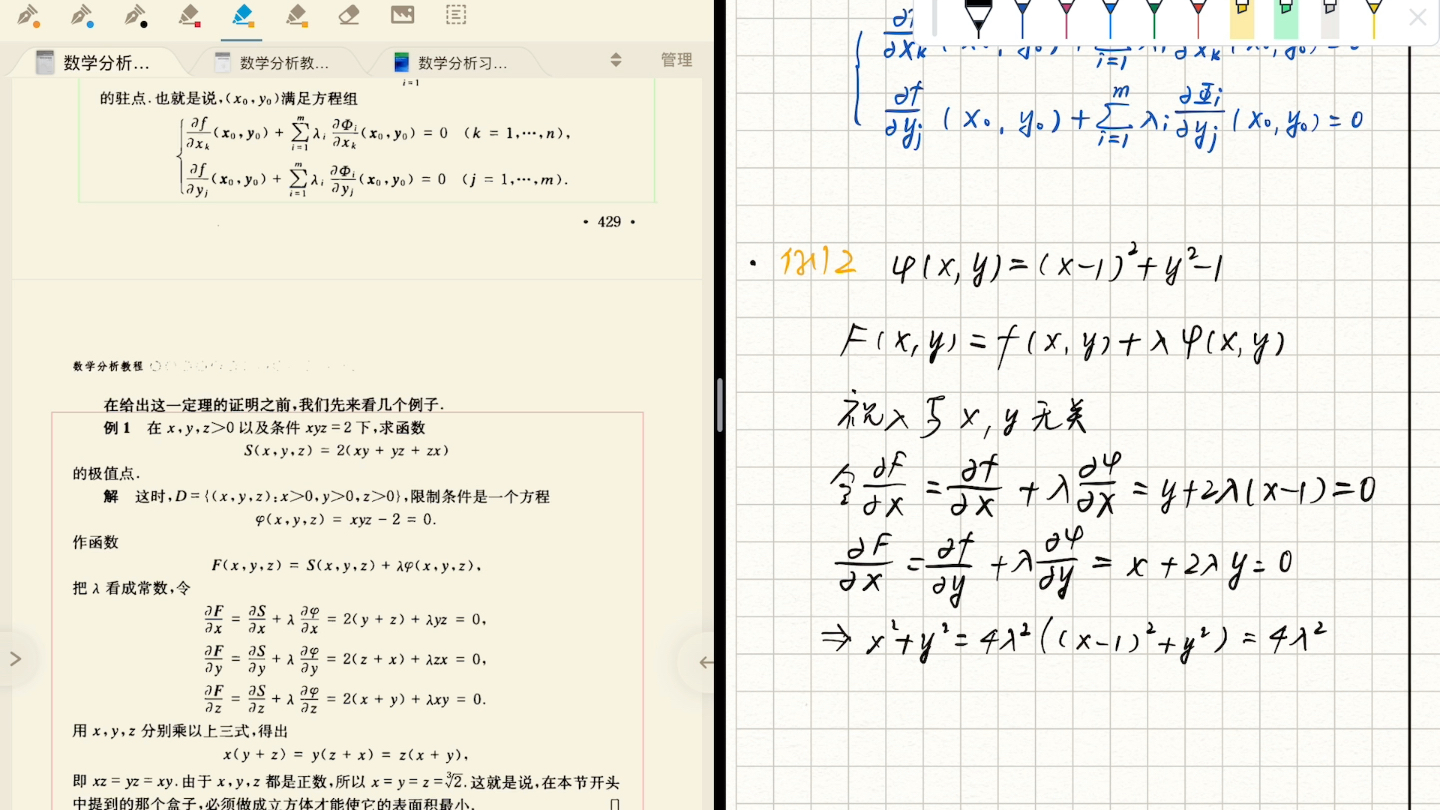 数学分析…
数学分析教…
数学分析习…
管理
i=1
的驻点.也就是说,(x₀,y₀)满足方程组
∂f/∂xₖ(x₀,y₀) + ∑_{i=1}^{m} λᵢ ∂Φᵢ/∂xₖ(x₀,y₀) = 0 (k = 1,⋯,n),
∂f/∂yⱼ(x₀,y₀) + ∑_{i=1}^{m} λᵢ ∂Φᵢ/∂yⱼ(x₀,y₀) = 0 (j = 1,⋯,m).
· 429 ·
数学分析教程
在给出这一定理的证明之前,我们先来看几个例子.
例 1 在 x,y,z>0 以及条件 xyz=2 下,求函数
S(x,y,z) = 2(xy + yz + zx)
的极值点.
解 这时,D={(x,y,z):x>0,y>0,z>0},限制条件是一个方程
φ(x,y,z) = xyz - 2 = 0.
作函数
F(x,y,z) = S(x,y,z) + λφ(x,y,z),
把 λ 看成常数,令
∂F/∂x = ∂S/∂x + λ ∂φ/∂x = 2(y + z) + λyz = 0,
∂F/∂y = ∂S/∂y + λ ∂φ/∂y = 2(z + x) + λzx = 0,
∂F/∂z = ∂S/∂z + λ ∂φ/∂z = 2(x + y) + λxy = 0.
用 x,y,z 分别乘以上三式,得出
x(y + z) = y(z + x) = z(x + y),
即 xz = yz = xy.由于 x,y,z 都是正数,所以 x = y = z = ∛2.这就是说,在本节开头
中提到的那个盒子,必须做成立方体才能使它的表面积最小.
∂f/∂yⱼ (x₀, y₀) + ∑_{i=1}^{m} λᵢ ∂Φᵢ/∂yⱼ (x₀, y₀) = 0
· 例2 φ(x,y) = (x-1)²+y²-1
F(x,y) = f(x,y)+λφ(x,y)
视λ与x,y无关
令 ∂F/∂x = ∂f/∂x + λ ∂φ/∂x = y+2λ(x-1)=0
∂F/∂x = ∂f/∂y + λ ∂φ/∂y = x+2λy=0
⇒ x²+y² = 4λ²((x-1)²+y²) = 4λ²